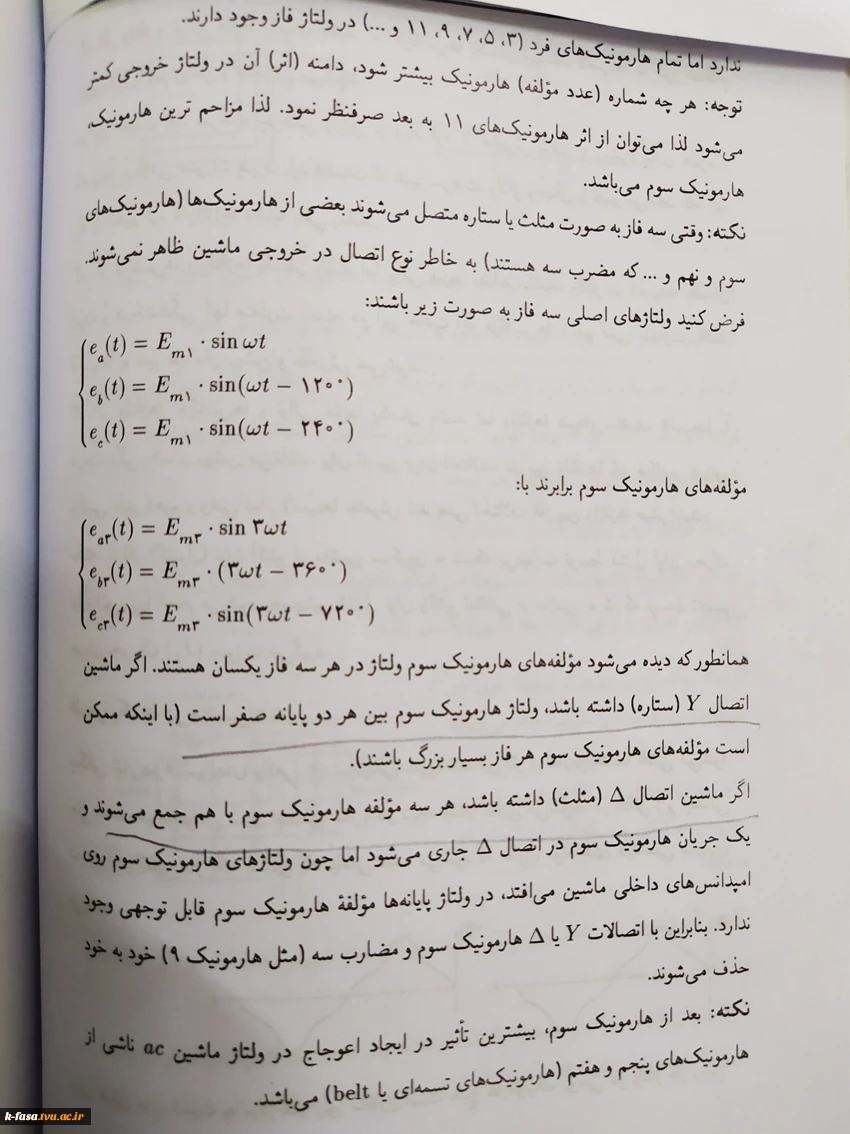 ندارد اما تمام هارمونیک‌های فرد (۳، ۵، ۷، ۹، ۱۱ و ...) در ولتاژ فاز وجود دارند.
توجه: هر چه شماره (عدد مؤلفه) هارمونیک بیشتر شود، دامنه (اثر) آن در ولتاژ خروجی کمتر
می‌شود لذا می‌توان از اثر هارمونیک‌های ۱۱ به بعد صرفنظر نمود. لذا مزاحم ترین هارمونیک،
هارمونیک سوم می‌باشد.
نکته: وقتی سه فاز به صورت مثلث یا ستاره متصل می‌شوند بعضی از هارمونیک‌ها (هارمونیک‌های
سوم و نهم و ... که مضرب سه هستند) به خاطر نوع اتصال در خروجی ماشین ظاهر نمی‌شوند.
فرض کنید ولتاژهای اصلی سه فاز به صورت زیر باشند:
e_a(t) = E_m۱ · sin ωt
e_b(t) = E_m۱ · sin(ωt − ۱۲۰°)
e_c(t) = E_m۱ · sin(ωt − ۲۴۰°)
مؤلفه‌های هارمونیک سوم برابرند با:
e_a۳(t) = E_m۳ · sin ۳ωt
e_b۳(t) = E_m۳ · (۳ωt − ۳۶۰°)
e_c۳(t) = E_m۳ · sin(۳ωt − ۷۲۰°)
همانطور که دیده می‌شود مؤلفه‌های هارمونیک سوم ولتاژ در هر سه فاز یکسان هستند. اگر ماشین
اتصال Y (ستاره) داشته باشد، ولتاژ هارمونیک سوم بین هر دو پایانه صفر است (با اینکه ممکن
است مؤلفه‌های هارمونیک سوم هر فاز بسیار بزرگ باشند).
اگر ماشین اتصال Δ (مثلث) داشته باشد، هر سه مؤلفه هارمونیک سوم با هم جمع می‌شوند و
یک جریان هارمونیک سوم در اتصال Δ جاری می‌شود اما چون ولتاژهای هارمونیک سوم روی
امپدانس‌های داخلی ماشین می‌افتد، در ولتاژ پایانه‌ها مؤلفهٔ هارمونیک سوم قابل توجهی وجود
ندارد. بنابراین با اتصالات Y یا Δ هارمونیک سوم و مضارب سه (مثل هارمونیک ۹) خود به خود
حذف می‌شوند.
نکته: بعد از هارمونیک سوم، بیشترین تأثیر در ایجاد اعوجاج در ولتاژ ماشین ac ناشی از
هارمونیک‌های پنجم و هفتم (هارمونیک‌های تسمه‌ای یا belt) می‌باشد.
k-fasa.tvu.ac.ir